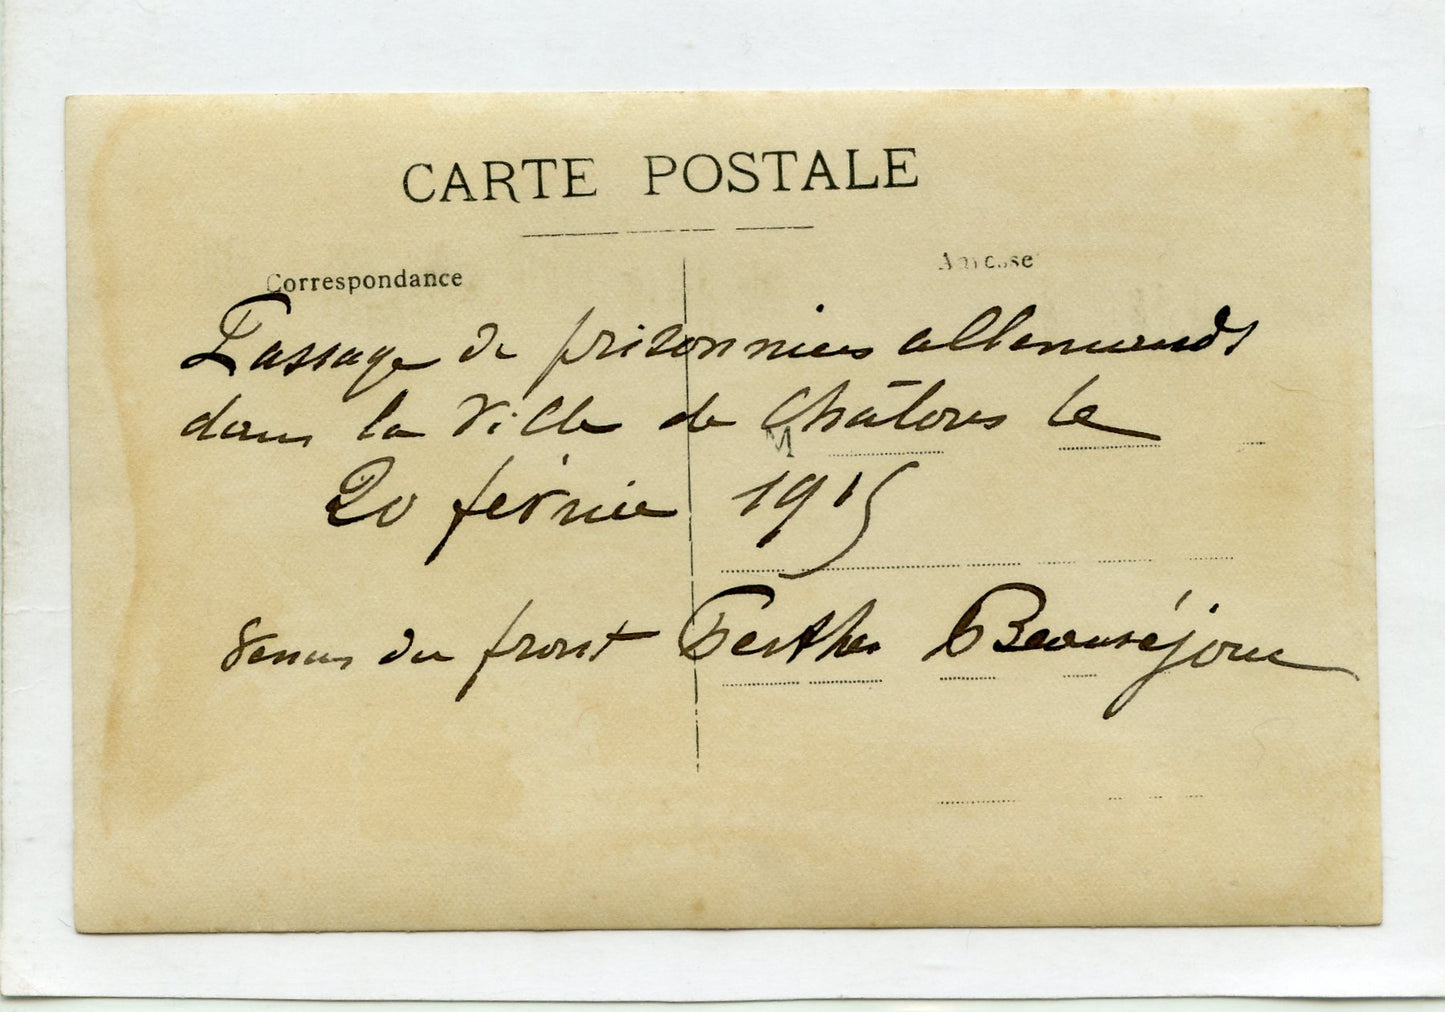 CARTE POSTALE
Correspondance
Adresse
Passage de prisonniers allemands
dans la Ville de Châlons le
M
20 février 1915
Venus du front Perthes Beauséjour